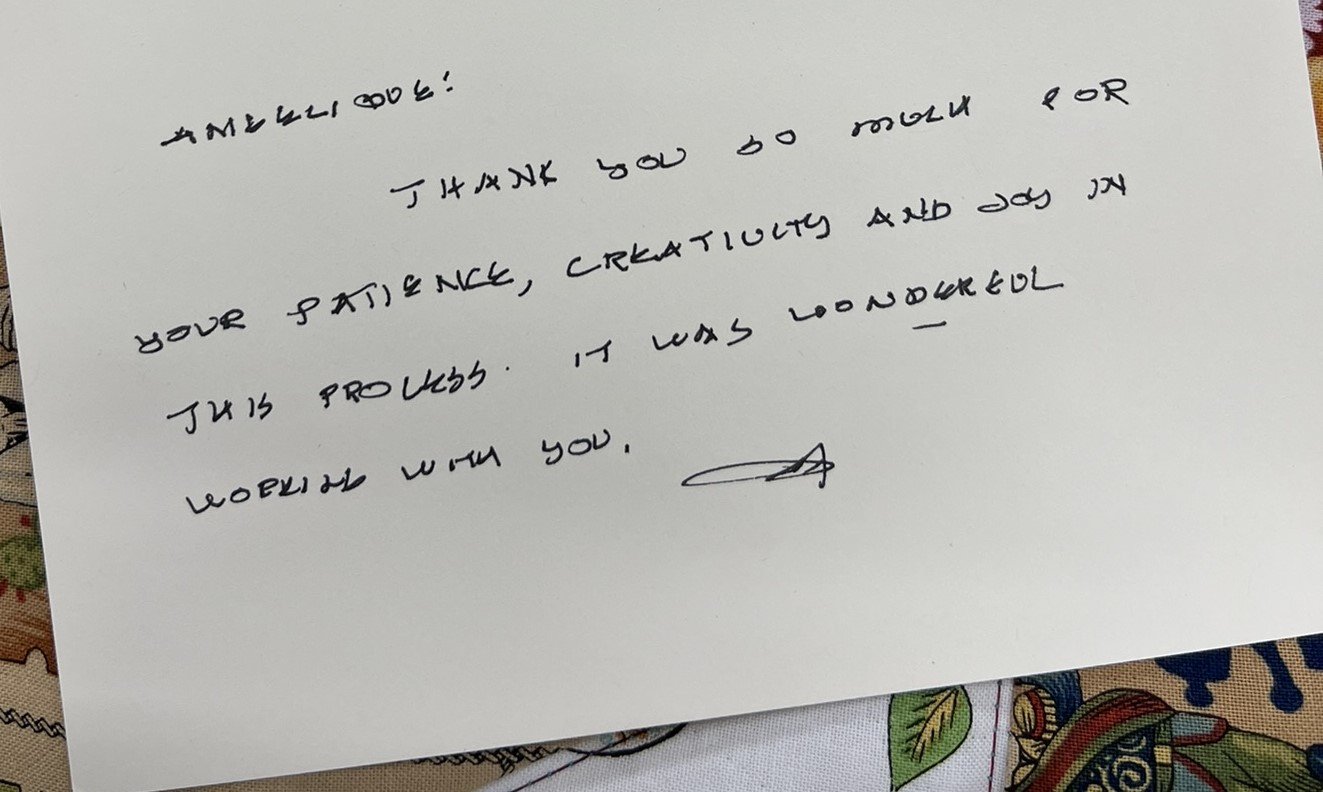 THANK YOU SO MUCH FOR
YOUR PATIENCE, CREATIVITY AND JOY IN
THIS PROCESS. IT WAS WONDERFUL
WORKING WITH YOU.